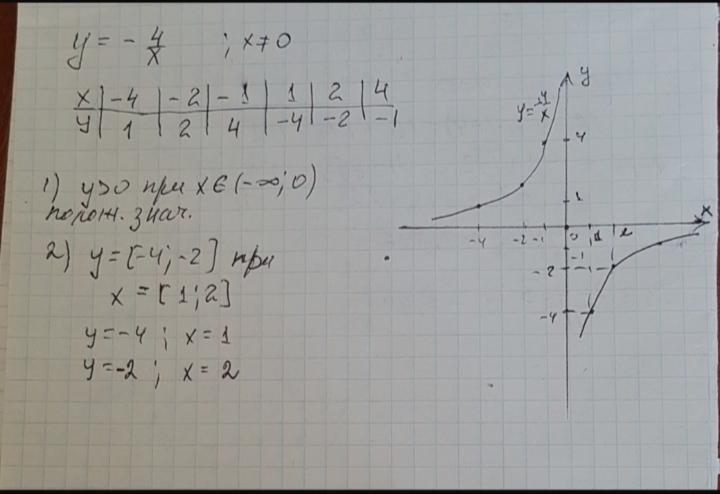 y = - 4/x ; x ≠ 0
x | -4 | -2 | -1 | 1 | 2 | 4
y | 1 | 2 | 4 | -4 | -2 | -1
1) y>0 при x ∈ (-∞; 0)
полож. знач.
2) y = [-4; -2] при
x = [1; 2]
y = -4 ; x = 1
y = -2 ; x = 2
y
y = -4/x
4
1
x
-4 -2 -1 0 1 2
-1
-2
-4